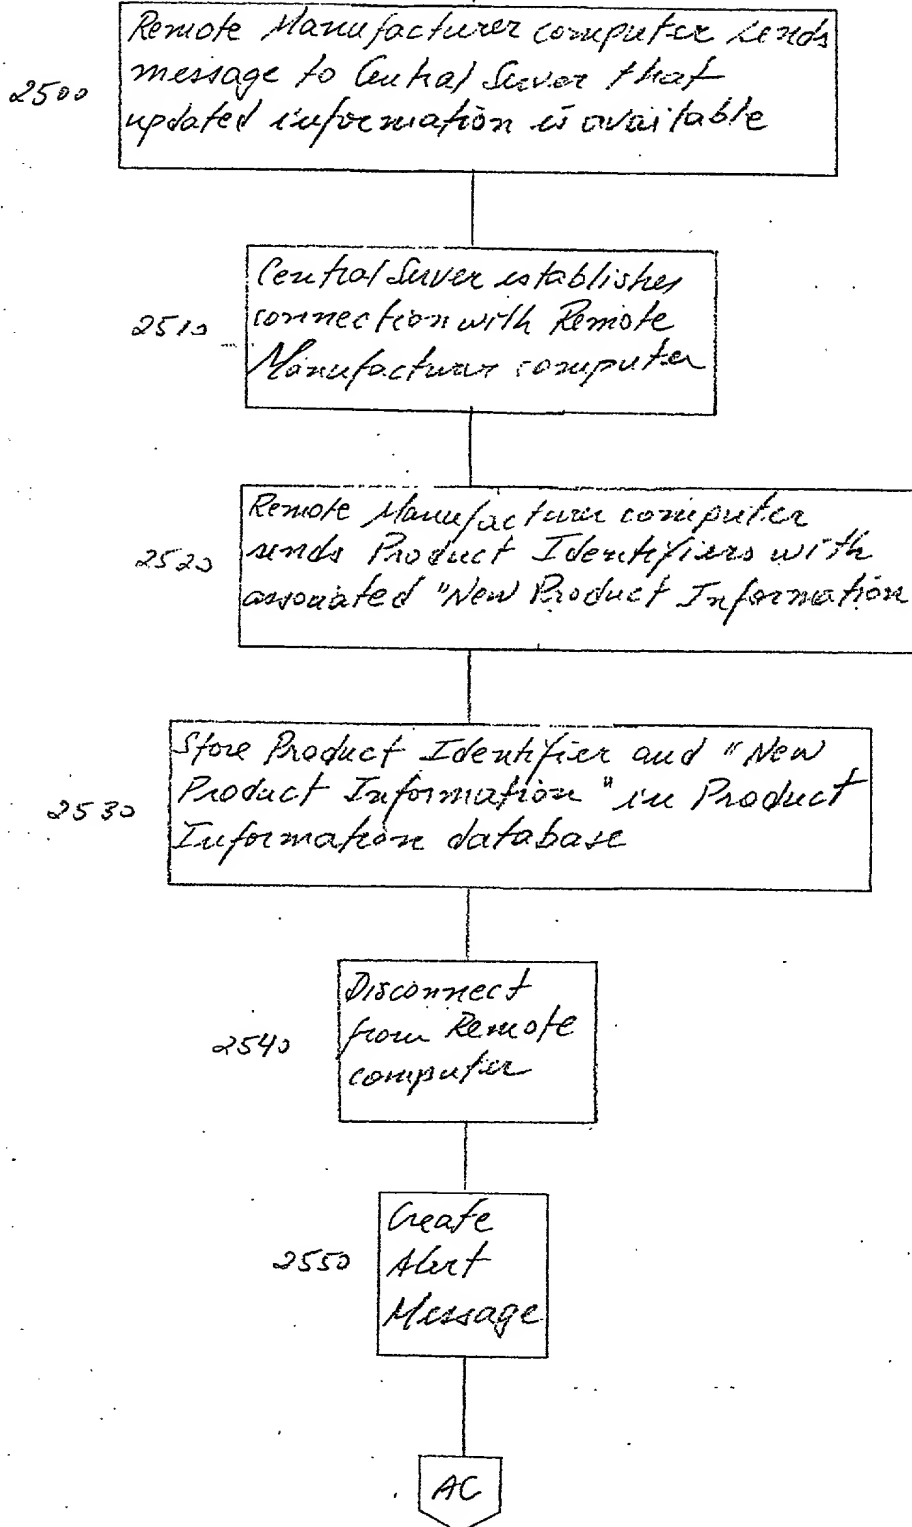 Remote Manufacturer computer sends
2500
message to Central Server that
updated information is available
Central Server establishes
2510
connection with Remote
Manufacturer computer
Remote Manufacturer computer
2520
sends Product Identifiers with
associated "New Product Information
Store Product Identifier and "New
2530
Product Information" in Product
Information database
Disconnect
2540
from Remote
computer
Create
2550
Alert
Message
AC